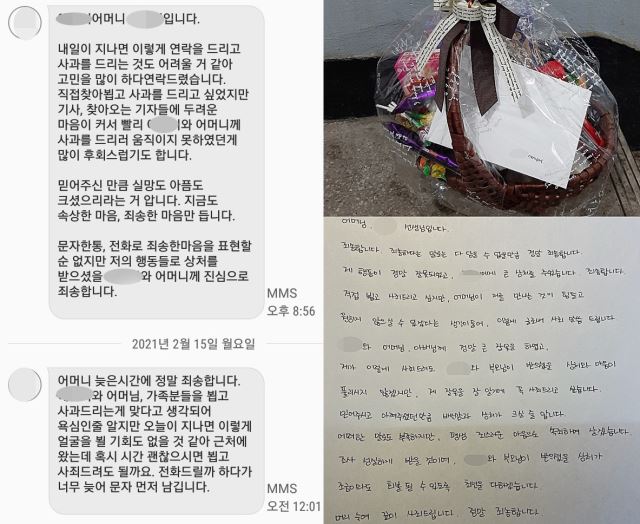 어머니                입니다.
내일이 지나면 이렇게 연락을 드리고
사과를 드리는 것도 어려울 거 같아
고민을 많이 하다연락드렸습니다.
직접찾아뵙고 사과를 드리고 싶었지만
기사, 찾아오는 기자들에 두려운
마음이 커서 빨리       와 어머니께
사과를 드리러 움직이지 못하였던게
많이 후회스럽기도 합니다.
믿어주신 만큼 실망도 아픔도
크셨으리라는 거 압니다. 지금도
속상한 마음, 죄송한 마음만 듭니다.
문자한통, 전화로 죄송한마음을 표현할
순 없지만 저의 행동들로 상처를
받으셨을       와 어머니께 진심으로
죄송합니다.
MMS
오후 8:56
2021년 2월 15일 월요일
어머니 늦은시간에 정말 죄송합니다.
와 어머님, 가족분들을 뵙고
사과드리는게 맞다고 생각되어
욕심인줄 알지만 오늘이 지나면 이렇게
얼굴을 뵐 기회도 없을 것 같아 근처에
왔는데 혹시 시간 괜찮으시면 뵙고
사죄드려도 될까요. 전화드릴까 하다가
너무 늦어 문자 먼저 남깁니다.
MMS
오전 12:01
어머님,       선생님입니다.
죄송합니다. 죄송하다는 말로는 다 담을 수 없을만큼 정말 죄송합니다.
제 행동이 정말 잘못되었고,       에게 큰 상처를 주었습니다. 죄송합니다.
직접 뵙고 사죄드리고 싶지만, 어머님이 저를 만나는 것이 힘들고
원하지 않으실 수 있겠다는 생각이들어, 이렇게 글로써 사죄 말씀 드립니다.
와 어머님, 아버님께 정말 큰 잘못을 하였고,
제가 이렇게 사죄드려도       와 부모님이 받았을 상처와 마음이
풀리시지 않겠지만, 제 잘못을 잘 알기에 꼭 사죄드리고 싶습니다.
믿어주시고 아껴주셨던만큼 배반감과 상처가 크실 줄 압니다.
어떠한 말로도 부족하지만, 평생 죄스러운 마음으로 속죄하며 살겠습니다.
조사 성실하게 받을 것이며,       와 부모님이 받았을 상처가
조금이라도 회복 될 수 있도록 최선을 다하겠습니다.
머리 숙여 깊이 사죄드립니다. 정말 죄송합니다.